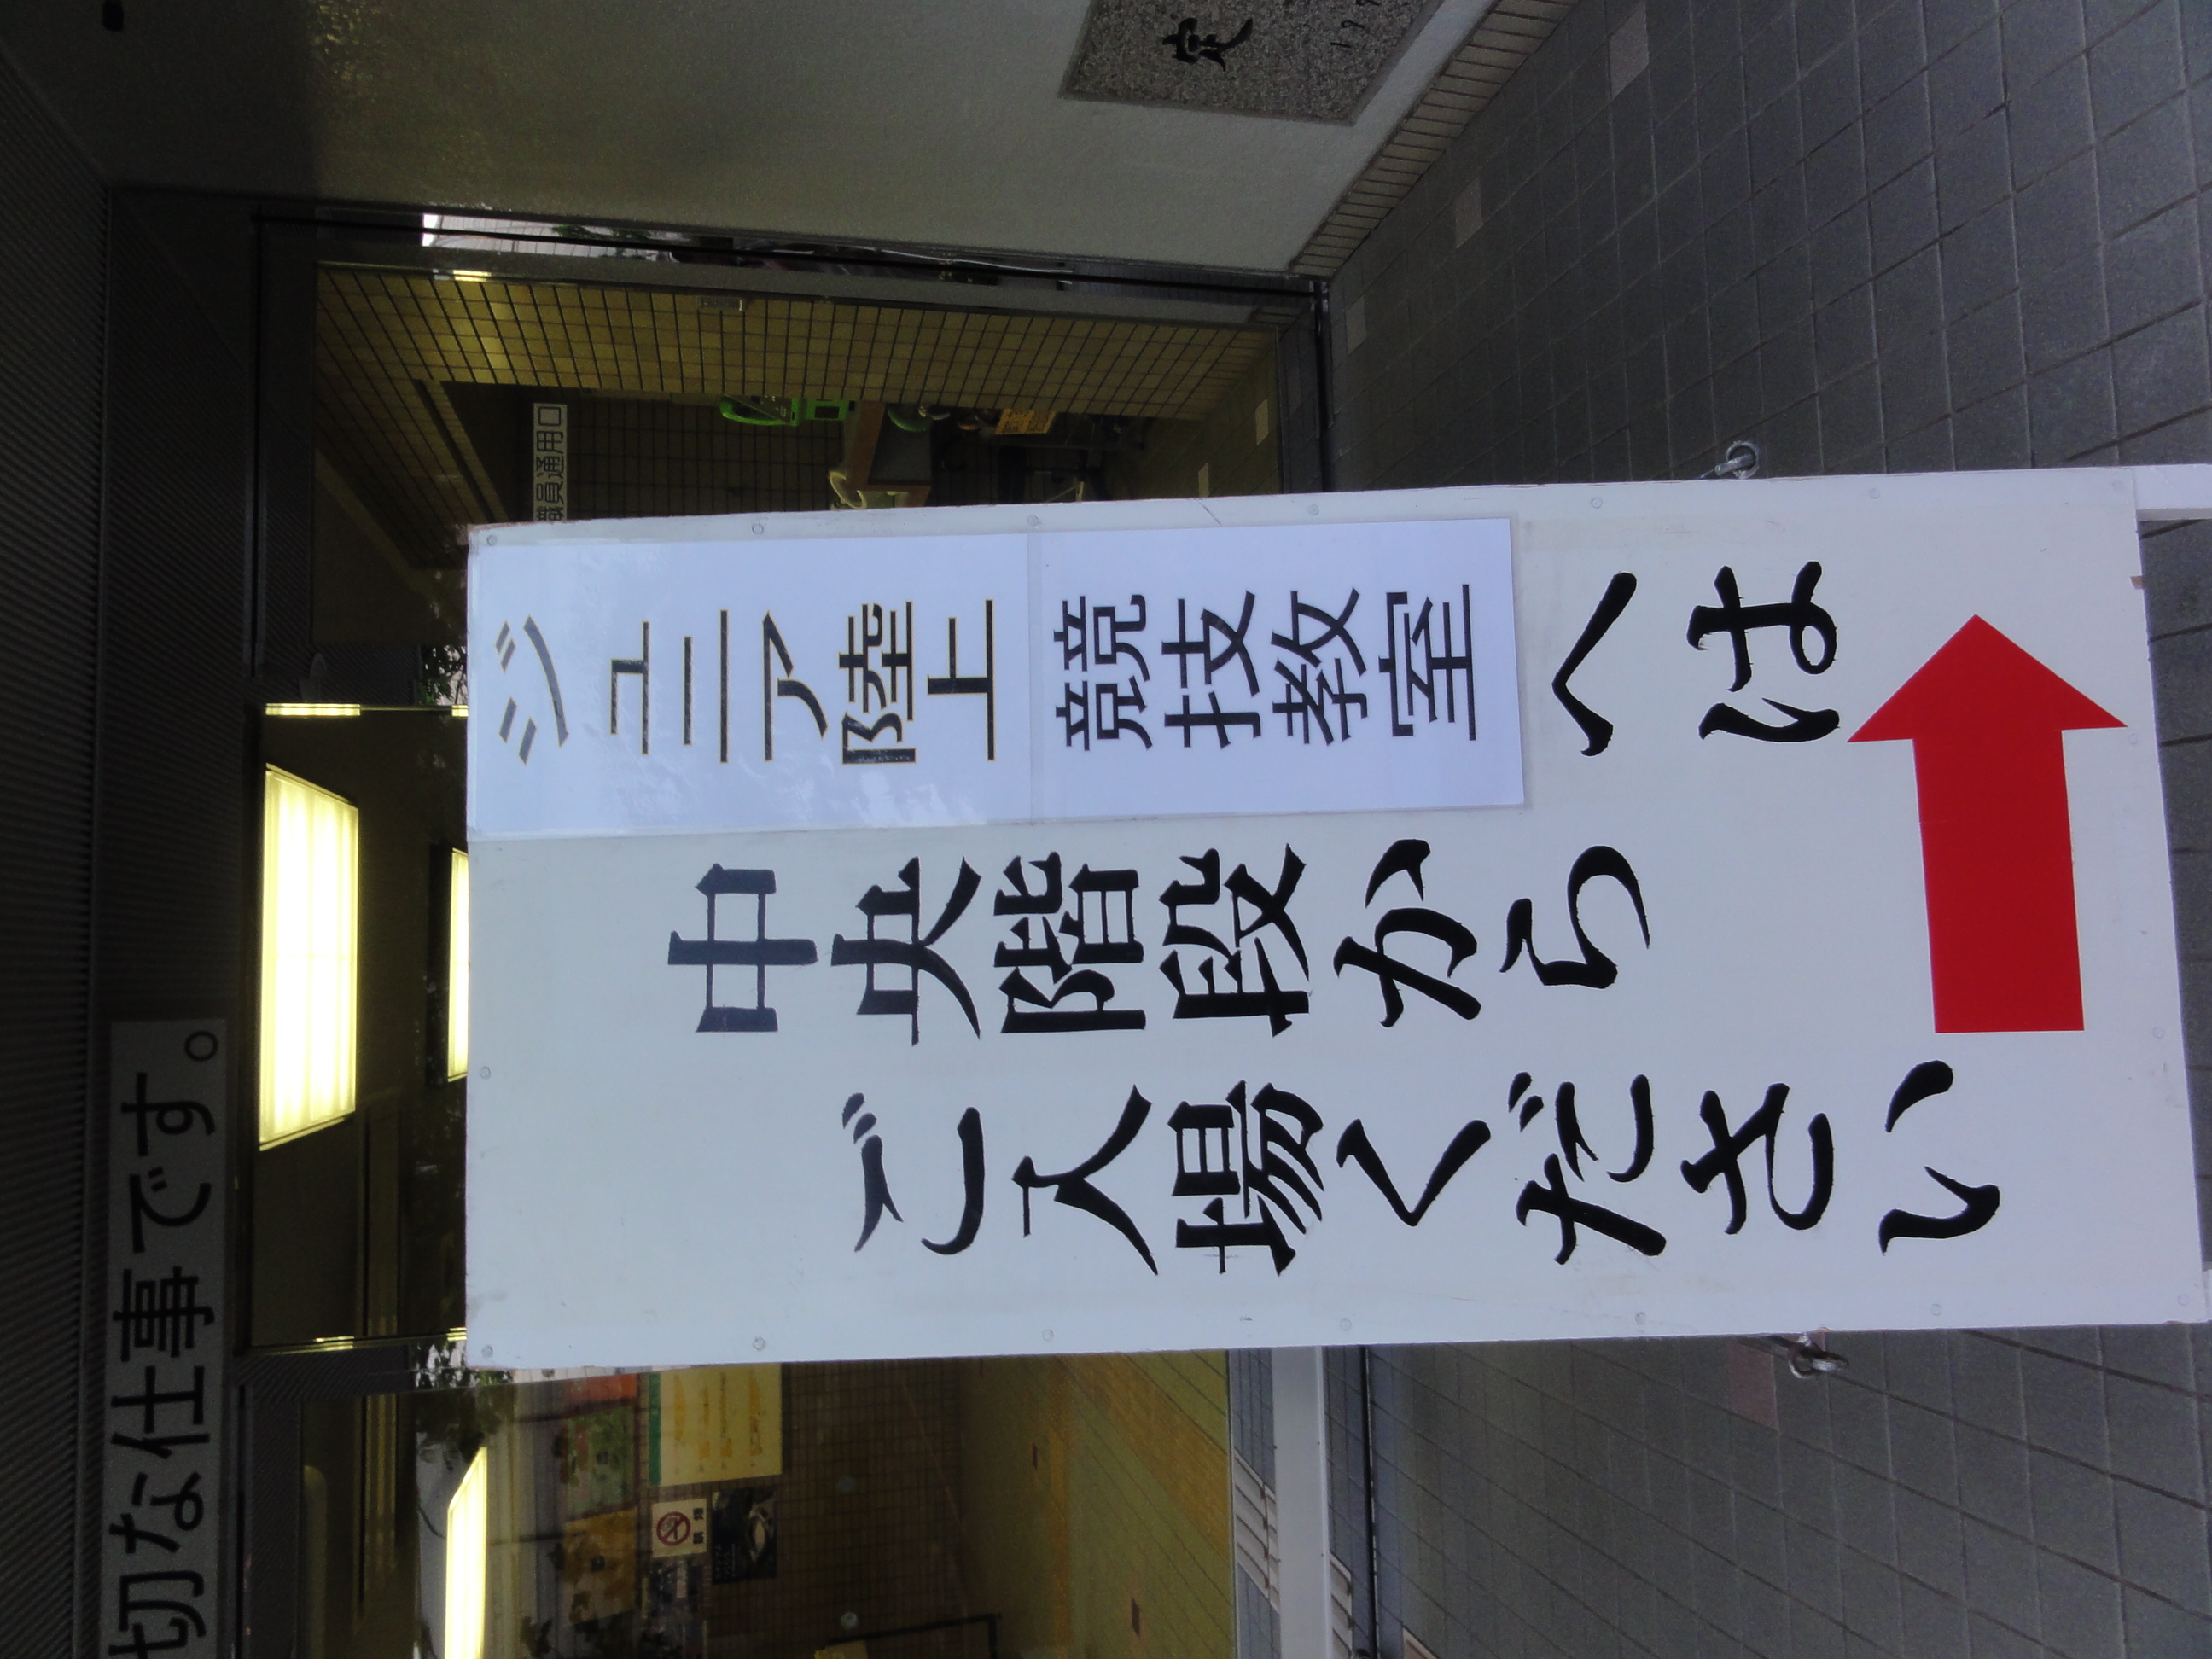 切な仕事です。
職員通用口
ジュニア陸上
競技教室
へは
中央階段から
ご入場ください
定